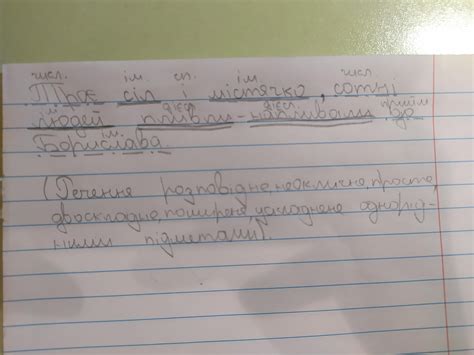 числ. ім. сп. ім. числ.
Троє сіл і містечко, сотні
ім. дієсл. дієсл. прийм
людей пливли-напливали до
ім.
Борислава.
(Речення розповідне, неоклична, просте,
двоскладне, поширене, ускладнене однорід-
ними підметами).